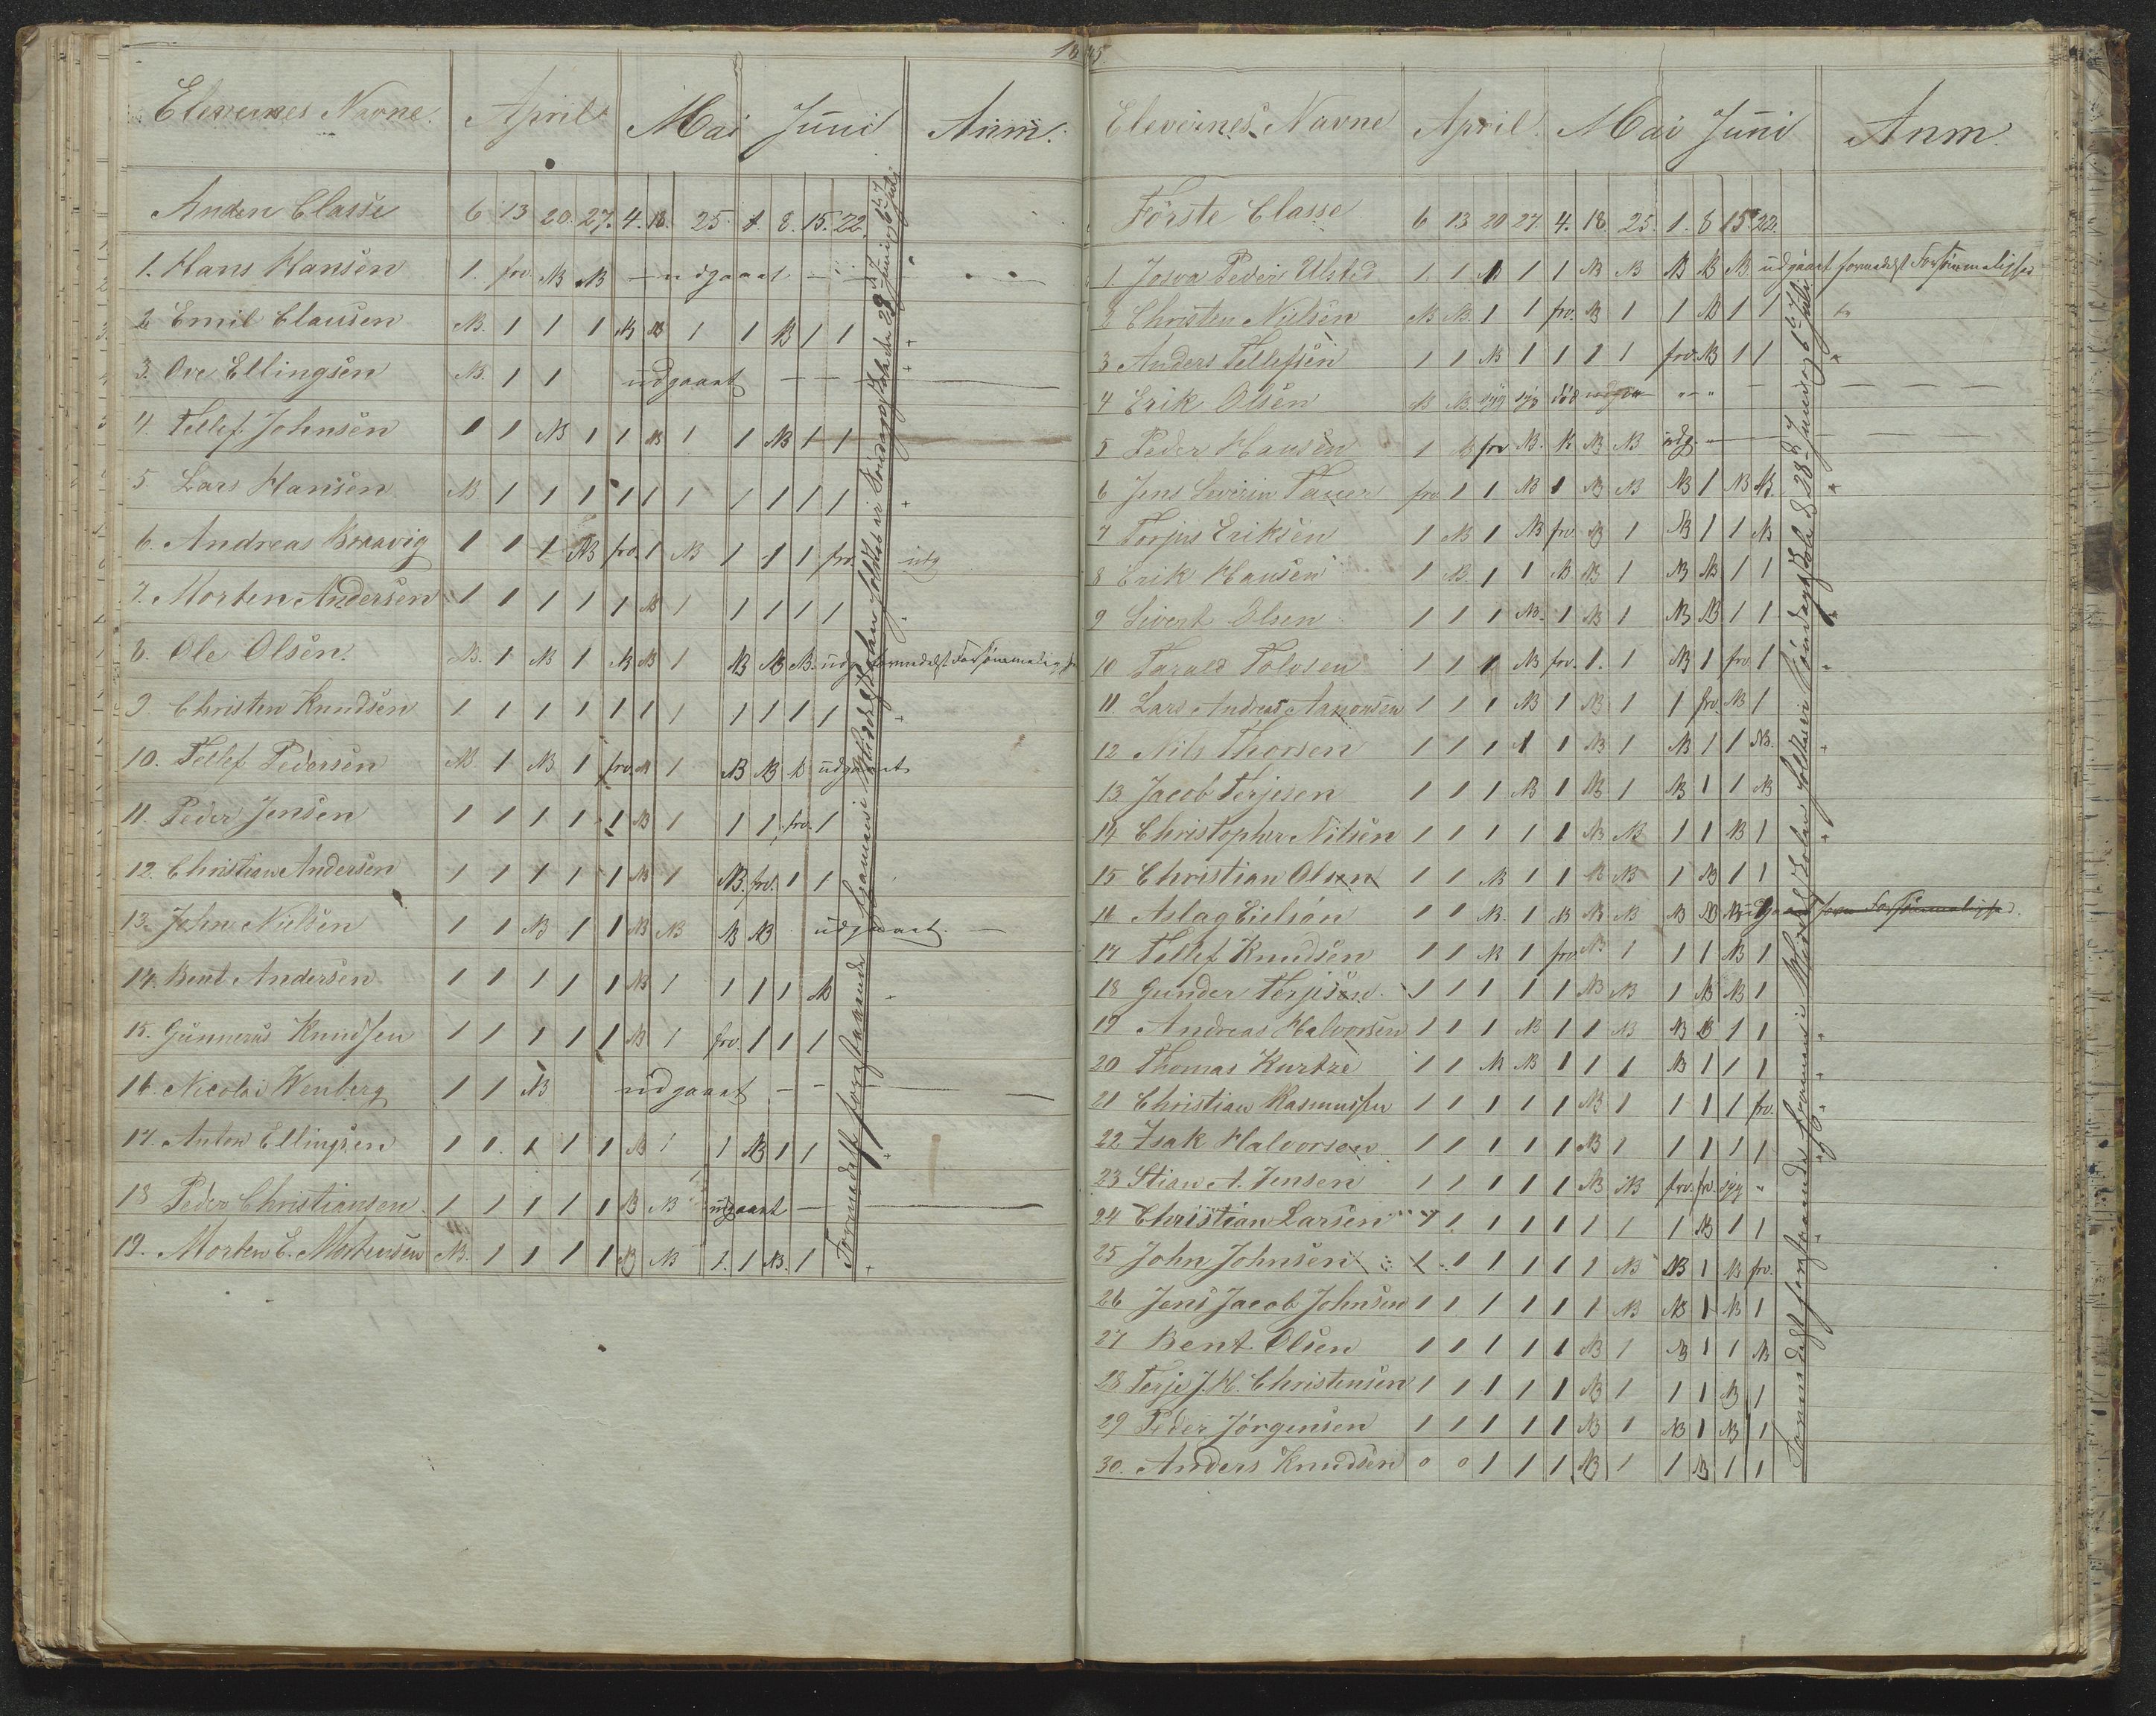 1845.
Elevernes Navne. April Mai Juni Anm.
Anden Classe 6. 13 20. 27. 4. 18. 25. 1. 8. 15. 22.
1. Hans Hansen 1. frv. NB NB — udgaaet —
2. Emil Clausen NB. 1 1 1 NB NB 1 1 NB 1 1 +
3. Ove Ellingsen NB. 1 1 udgaaet — — —
4. Tellef Johnsen 1 1 NB 1 1 NB 1 1 NB 1 1
5 Lars Hansen NB 1 1 1 1 1 1 1 1 1 1 +
6. Andreas Braavig 1 1 1 NB frv. 1 NB 1 1 1 frv. udg
7. Morten Andersen 1 1 1 1 1 NB 1 1 1 1 1
8. Ole Olsen. NB. 1 NB 1 NB NB 1 NB NB NB. udg formedelst Forsömmelighed
9 Christen Knudsen 1 1 1 1 1 1 1 1 1 1 1 +
10. Tellef Pedersen NB 1 NB 1 frv. NB 1 NB NB NB udgaaet
11. Peder Jensen 1 1 1 1 1 NB 1 1 1 frv. 1
12. Christian Andersen 1 1 1 1 1 NB 1 NB. frv. 1 1
13. John Nielsen 1 1 NB 1 1 NB NB NB NB udgaaet. —
14. Bent Andersen 1 1 1 1 1 NB 1 1 1 1 NB
15. Gunnerus Knudsen 1 1 1 1 1 NB 1 frv. 1 1 1
16. Nicolai Wenberg 1 1 NB udgaaet — — —
17. Anton Ellingsen 1 1. 1 1 1 NB 1 1 NB 1 1 +
18 Peder Christiansen 1 1 1 1 1 NB NB udgaaet —
19. Morten E. Mortensen NB. 1 1 1 1 NB NB 1. 1 NB. 1 +
Formedelst forestaaende Examen i holdtes ei Söndagsskole den 28de Juni og 6te Juli
Elevernes Navne April. Mai Juni Anm.
Förste Classe 6 13 20 27. 4. 18 25. 1. 8 15 22.
1. Josva Peder Ulsted 1 1 NB 1 1 NB NB NB NB NB udgaaet formedelst Forsömmelighed
2 Christen Nielsen NB NB. 1 1 frv. NB 1 1 NB 1 1
3 Anders Tellefsen 1 1 NB 1 1 1 1 frv. NB 1 1
4 Erik Olsen NB NB. syg syg död
5 Peder Hansen 1 NB frv NB. NB NB NB udg. —
6 Jens Severin frv 1 1 NB 1 NB NB NB 1 NB NB.
7 Torjus Eriksen 1 NB 1 NB frv. NB 1 NB 1 1 NB
8 Erik Hansen 1 NB. 1 1 NB NB 1 NB NB 1 1
9 Sivert Olsen 1 1 1 NB. 1 NB 1 NB NB 1 1
10 Tarald Tolvsen 1 1 1 NB frv. 1. 1 NB 1 frv. 1
11 Lars Andreas Aanonsen 1 1 1 NB 1 NB 1 1 frv. NB 1
12 Nils Thorsen 1 1 1 1 1 NB 1 NB 1 1 NB. +
13. Jacob Terjesen 1 1 1 NB 1 NB 1 NB 1 1 NB
14 Christopher Nilsen 1 1 1 1 1 NB NB 1 1 NB 1 +
15 Christian Olsen 1 1 NB 1 1 NB NB 1 NB 1 1
16 Aslag Eielsön 1 1 NB. 1 NB NB NB NB NB NB udgaaet form Forsömmelighed.
17 Tellef Knudsen 1 1 NB 1 frv. NB 1 1 1 NB 1
18 Gunder Terjesen. 1 1 1 1 1 NB NB 1 NB NB 1
19 Andreas Halvorsen 1 1 1 NB 1 1 NB NB NB 1 1 +
20 Thomas Kurtze 1 1 NB NB 1 1 1 NB 1 1 1
21 Christian Rasmussen 1 1 1 1 1 NB 1 1 1 1 frv.
22 Isak Halvorsen 1 1 1 1 1 NB 1 1 1 1 1
23 Stian A. Jensen 1 1 1 1 1 NB NB frv. frv. syg "
24 Christian Larsen 1 1 1 1 1 1 1 1 NB 1 1
25 John Johnsen 1 1 1 1 1 1 NB NB 1 NB frv.
26 Jens Jacob Johnsen 1 1 1 1 1 1 NB NB 1 NB 1
27 Bent Olsen 1 1 1 1 1 NB 1 NB 1 1 NB
28 Terje J. H. Christensen 1 1 1 1 1 NB 1 1 1 NB 1
29 Peder Jörgensen 1 1 1 1 1 NB 1 NB 1 NB 1
30. Anders Knudsen 0 0 1 1 1 NB 1 1 NB 1 1
Formedelst forestaaende Examen i holdtes ei Söndagsskole d 28de Juni og 6te Juli